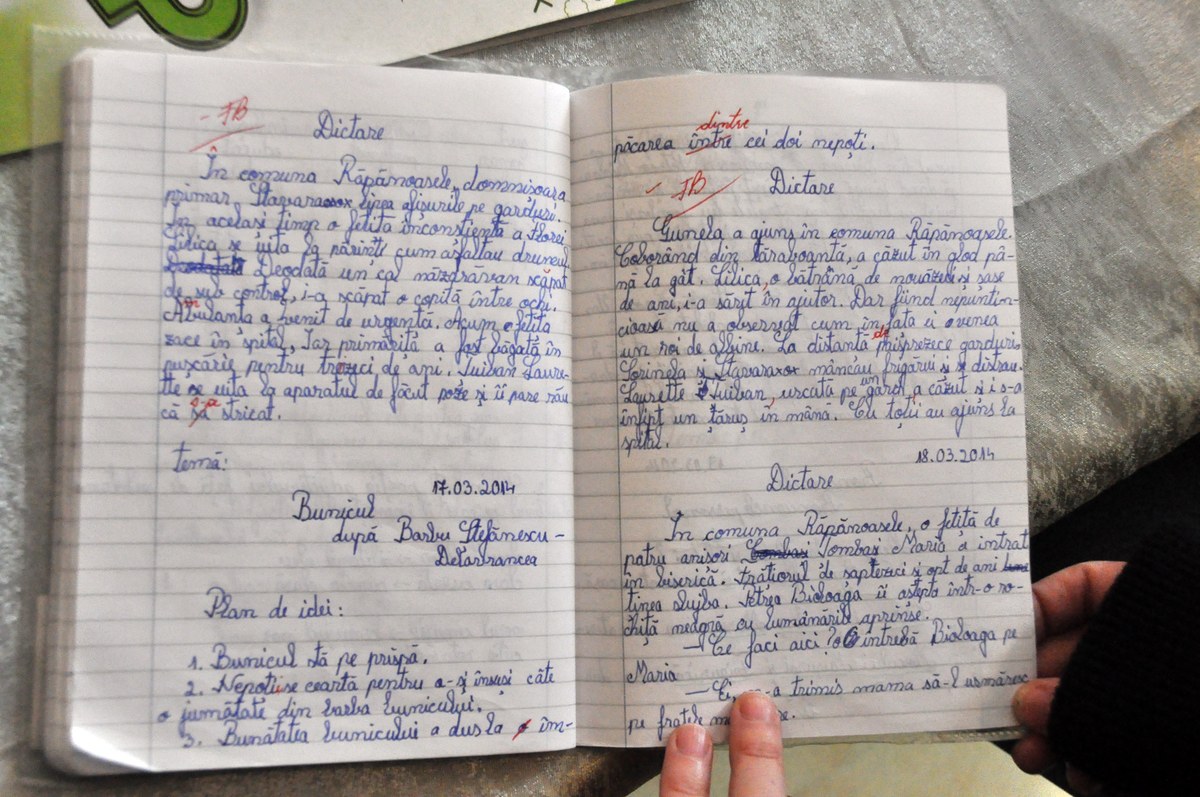 - FB
Dictare
În comuna Răpănoasele, domnișoara
primar Stavaraxox lipea afișurile pe garduri.
În același timp o fetiță inconștientă a florei
Lilica se uita la părinți cum asfaltau drumul
Deodată un cal năzdrăvan scăpat
de sub control, i-a scăpat o copită între ochi.
Ambulanta a venit de urgență. Acum o fetița
zace în spital, iar primărița a fost băgată în
pușcărie pentru treizici de ani. Suiban Laure-
tte se uita la aparatul de făcut poze și îi pare rău
că s-a stricat.
temă:
17.03.2014
Bunicul
după Barbu Ștefănescu-
Delavrancea
Plan de idei:
1. Bunicul stă pe prispă.
2. Nepoții se ceartă pentru a-și însuși câte
o jumătate din barba bunicului.
3. Bunătatea bunicului a dus la îm-
dintre
păcarea între cei doi nepoți.
- FB
Dictare
Gunela a ajuns în comuna Răpănoasele.
Coborând din șaraboanță, a căzut în glod pâ-
nă la gât. Lilica, o bătrână de nouăzeci și șase
de ani, i-a sărit în ajutor. Dar fiind neputin-
cioasă nu a observat cum în fața ei venea
un roi de albine. La distanță de prisprezece garduri
Sorinela și Stavaraxox mâncau frigărui și se distrau.
Laurette Suiban, urcată pe un gard a căzut și i s-a
înfipt un țăruș în mână. Cu toții au ajuns la
spital.
18.03.2014
Dictare
În comuna Răpănoasele, o fetiță de
patru anișori Tombași Maria a intrat
în biserică. Frățiorul de șaptezici și opt de ani
ținea slujba. Petrea Bioloaga îi aștepta într-o ro-
chiță neagră cu lumânările aprinse.
- Ce faci aici? O întrebă Bioloaga pe
Maria
- Ei, a trimis mama să-l urmăresc
pe fratele